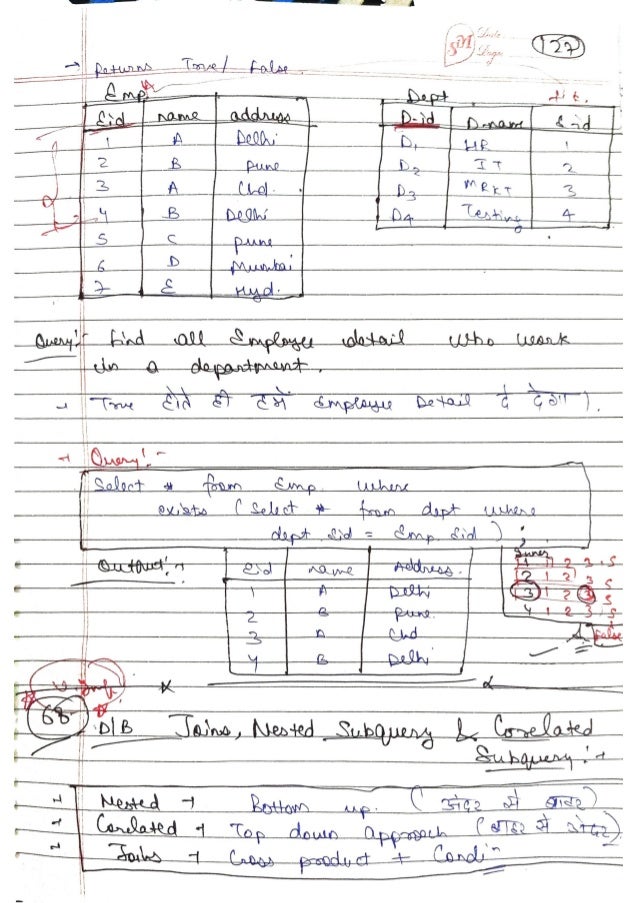 SM Date Page 127
→ Returns True/ False.
Emp
Eid name address
1 A Delhi
2 B Pune
3 A Chd.
4 B Delhi
5 C Pune
6 D Mumbai
7 E Hyd.
Dept
D-id D-name Eid
D1 HR 1
D2 IT 2
D3 MRKT 3
D4 Testing 4
Query:- find all Employee detail who work
in a department.
→ True होते ही हमें Employee Detail दे देगा).
→ Query:-
Select * from Emp where
exists (Select * from dept where
dept.Eid = Emp.Eid);
Output:→
Eid name Address.
1 A Delhi
2 B Pune.
3 A Chd
4 B Delhi
Inner
1 1 2 3 . 5
2 1 2 3 5
3 1 2 3 5
4 1 2 3 . 5
False
V. Imf.
68. D/B Joins, Nested Subquery & Corelated
Subquery:→
→ Nested → Bottom up. (अंदर से बाहर)
→ Corelated → Top down approach (बाहर से अंदर)
→ Joins → Cross product + Condiⁿ